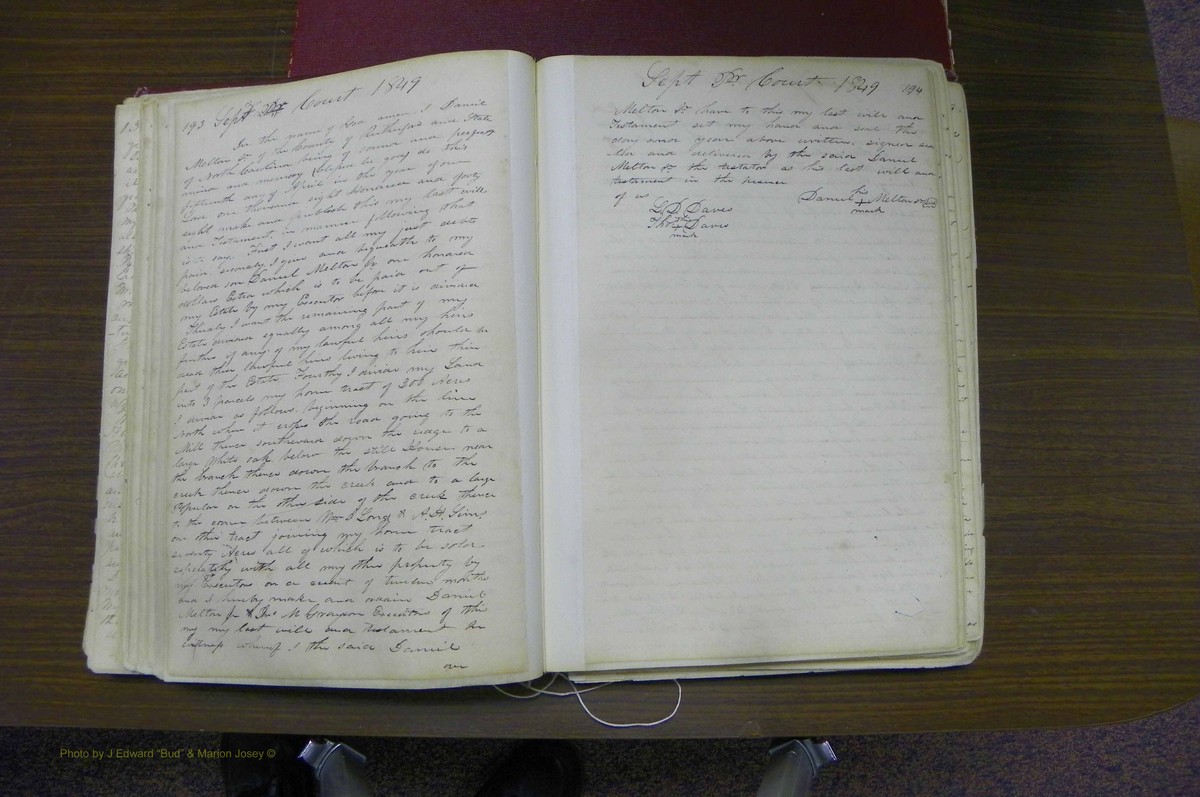 193 Sept Court 1849
In the name of God amen. I Daniel
Melton Sr of the County of Rutherford and State
of North Carolina being of sound and perfect
mind and memory (blessed be god) do this
fifteenth day of April in the year of our
Lord one thousand eight Hundred and forty
eight make and publish this my last will
and Testament in manner following that
is to say. First I want all my just debts
paid. Secondly I give and bequeathe to my
beloved son Daniel Melton Jr one hundred
dollars Extra which is to be paid out of
my Estate by my Executor before it is divided
Thirdly I want the remaining part of my
Estate divided equally among all my heirs
further if any of my lawful heirs should be
dead their lawful heirs living to have their
part of the Estate Fourthly I divide my Land
into 3 parcels my home tract of 200 Acres
I divide as follows, beginning on the line
North where it crosses the road going to the
Mill thence southward down the ridge to a
large White oak below the still House near
the branch thence down the branch to the
creek thence down the creek and to a large
Popular on the other side of the creek thence
to the corner between Wm B Long & A. H. Sims
on the tract joining my home tract
seventy Acres all of which is to be sold
seperately with all my other property by
my Executors on a credit of twelve months
and I hereby make and ordain Daniel
Melton Jr & Jno M Grayson Executors of this
my my last will and Testament In
witness whereof I the said Daniel
over
Sept Court 1849 194
Melton Sr have to this my last will and
Testament set my hand and seal the
day and year above written, signed sea
led and delivered by the said Daniel
Melton Sr the testator as his last will and
testament in the presence
of us
Daniel his x mark Melton Sr
G. D. Daves
Thos his x mark Daves
Photo by J Edward "Bud" & Marion Josey ©